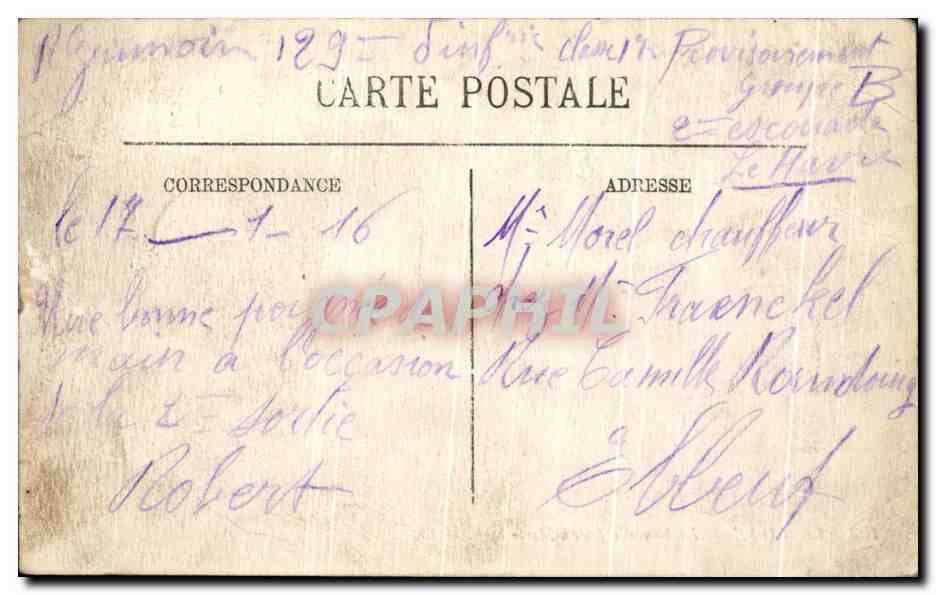 129 d'inf rie Provisoirement
Groupe B
CARTE POSTALE
2 escouade
Le Havre
CORRESPONDANCE
ADRESSE
le 17 - 1 - 16
Mr Morel chauffeur
Une bonne poignée
chez Mr Fraenckel
main à l'occasion
Rue Camille Randoing
de la 2 sortie
à
Robert
Elbeuf
CPAPHIL